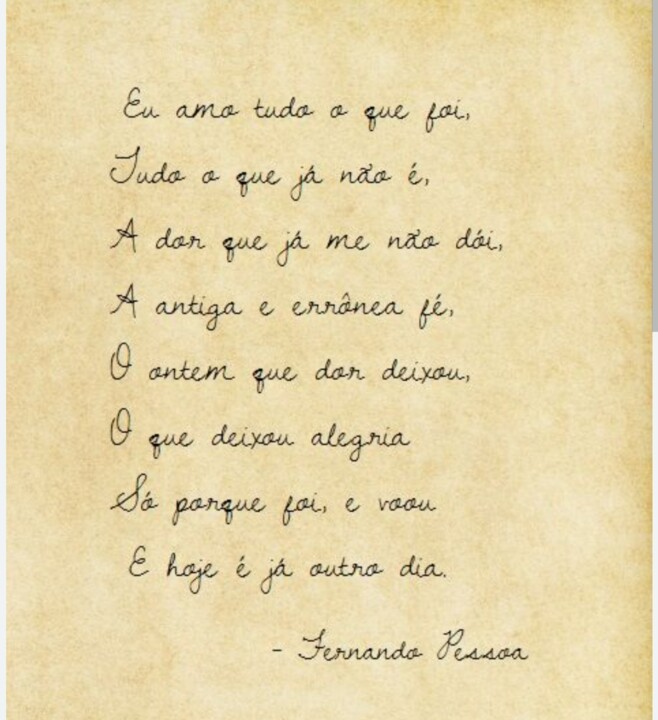 Eu amo tudo o que foi,
Tudo o que já não é,
A dor que já me não dói,
A antiga e errônea fé,
O ontem que dor deixou,
O que deixou alegria
Só porque foi, e voou
E hoje é já outro dia.
- Fernando Pessoa